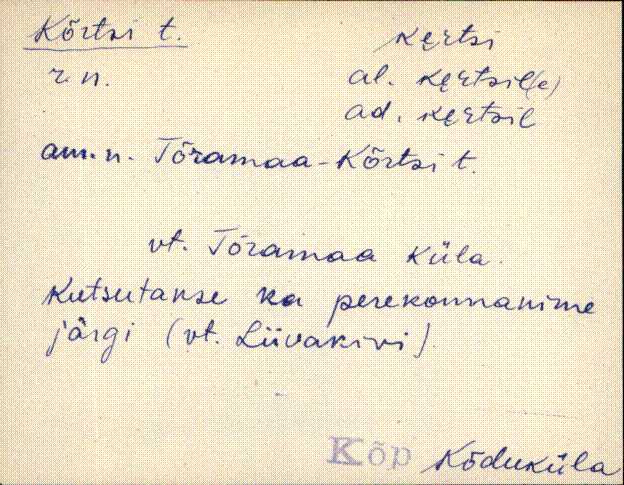 Kõrtsi t.
kęrtsi
r.n.
al. kęrtsil(e)
ad. kęrtsil
am.n. Tõramaa-Kõrtsi t.
vt. Tõramaa küla.
Kutsutakse ka perekonnanime
järgi (vt. Liivakivi).
Kõp Kõduküla